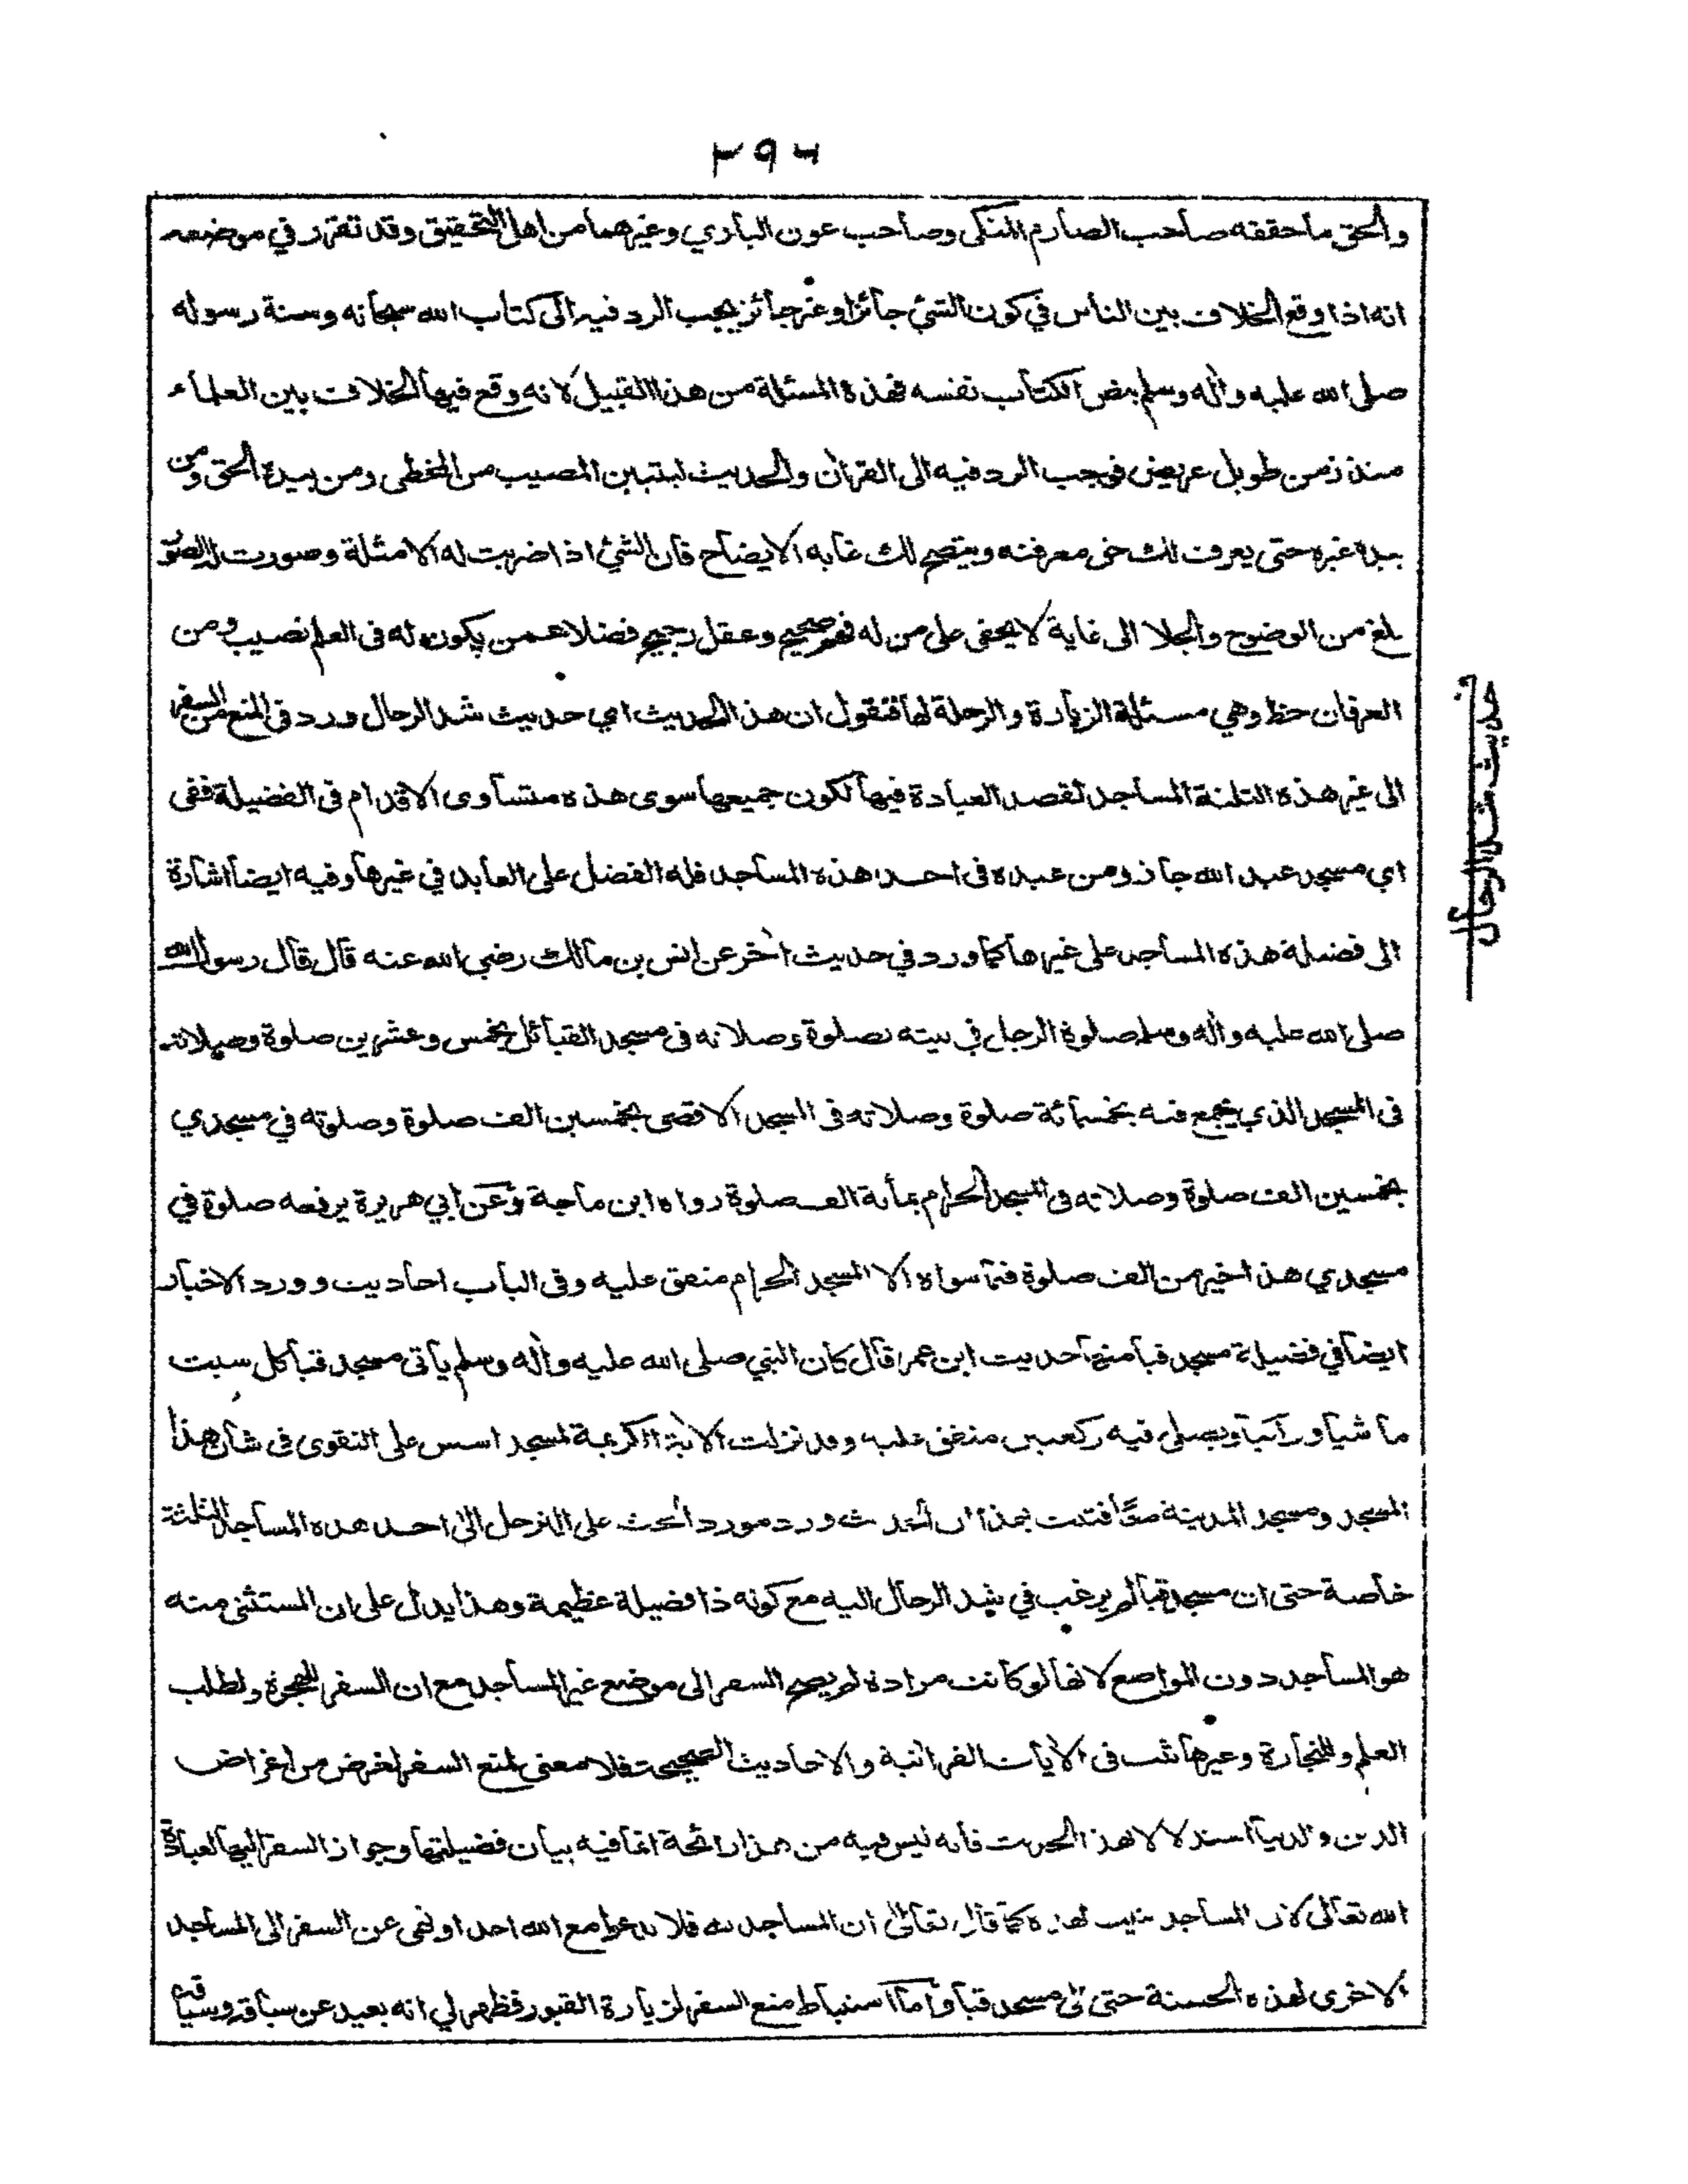 ٢٩٦
والحق ما حققه صاحب الصارم المنكى وصاحب عون الباري وغيرهما من اهل التحقيق وقد تقرر في موضعه
انه اذا وقع الخلاف بين الناس في كون الشئ جائزا وغير جائز يجب الرد فيه الى كتاب الله سبحانه وسنة رسوله
صلى الله عليه واٰله وسلم بنص الكتاب نفسه فهذه المسئلة من هذا القبيل لانه وقع فيها الخلاف بين العلماء
منذ زمن طويل عريض فوجب الرد فيه الى القراٰن والحديث ليتبين المصيب من المخطى ومن بيده الحق ومن
بيده غيره حتى يعرف لك حق معرفته ويتضح لك غايه الايضاح فان الشئ اذا ضربت له الامثلة وصورت له الصور
بلغ من الوضوح والجلا الى غاية لا يخفى على من له فهم صحيح وعقل رجيح فضلا عمن يكون له فى العلم نصيب ومن
العرفان حظ وهي مسئلة الزيارة والرحلة لها فنقول ان هذا الحديث اي حديث شد الرحال ورد فى المنع من السفر
الى غير هذه الثلثة المساجد لقصد العبادة فيها لكون جميعها سوى هذه متساوى الاقدام فى الفضيلة ففى
اي مسجد عبد الله جاز ومن عبده فى احد هذه المساجد فله الفضل على العابد في غيرها وفيه ايضا اشارة
الى فضيلة هذه المساجد على غيرها كما ورد في حديث اٰخر عن انس بن مالك رضي الله عنه قال قال رسول الله
صلى الله عليه واٰله وسلم صلوة الرجل في بيته بصلوة وصلاته فى مسجد القبائل بخمس وعشرين صلوة وصلاته
فى المسجد الذي يجمع فيه بخمسمائة صلوة وصلاته فى المسجد الاقصى بخمسين الف صلوة وصلوته في مسجدي
بخمسين الف صلوة وصلاته فى المسجد الحرام بمأية الف صلوة رواه ابن ماجة وعن ابي هريرة يرفعه صلوة في
مسجدي هذا خير من الف صلوة فيما سواه الا المسجد الحرام متفق عليه وفى الباب احاديث وورد الاخبار
ايضا في فضيلة مسجد قبا منها حديث ابن عمر قال كان النبي صلى الله عليه واٰله وسلم يأتى مسجد قبا كل سبت
ما شيا وراكبا ويصلى فيه ركعتين متفق عليه وقد نزلت الاٰية الكريمة لمسجد اسس على التقوى فى شان هذا
المسجد ومسجد المدينة معًا فثبت بهذا ان الحديث ورد مورد الحث على الترحل الى احد هذه المساجد الثلثة
خاصة حتى ان مسجد قبا لم يرغب في شد الرحال اليه مع كونه ذا فضيلة عظيمة وهذا يدل على ان المستثنى منه
هو المساجد دون المواضع لانها لو كانت مرادة لم يصح السفر الى موضع غير المساجد مع ان السفر للهجرة ولطلب
العلم وللتجارة وغيرها ثبت فى الاٰيات القراٰنية والاحاديث الصحيحة فلا معنى لمنع السفر لغرض من اغراض
الدين والدنيا استدلالا لهذا الحديث فانه ليس فيه من هذا رائحة انما فيه بيان فضيلتها وجواز السفر اليها لعبادة
الله تعالى لان المساجد بنيت لهذه كما قال تعالى ان المساجد لله فلا تدعوا مع الله احدا ونهى عن السفر الى المساجد
الاخرى لهذه الحسنة حتى الى مسجد قبا واما استنباط منع السفر لزيارة القبور فظهر لي انه بعيد عن سباقه وسياقه